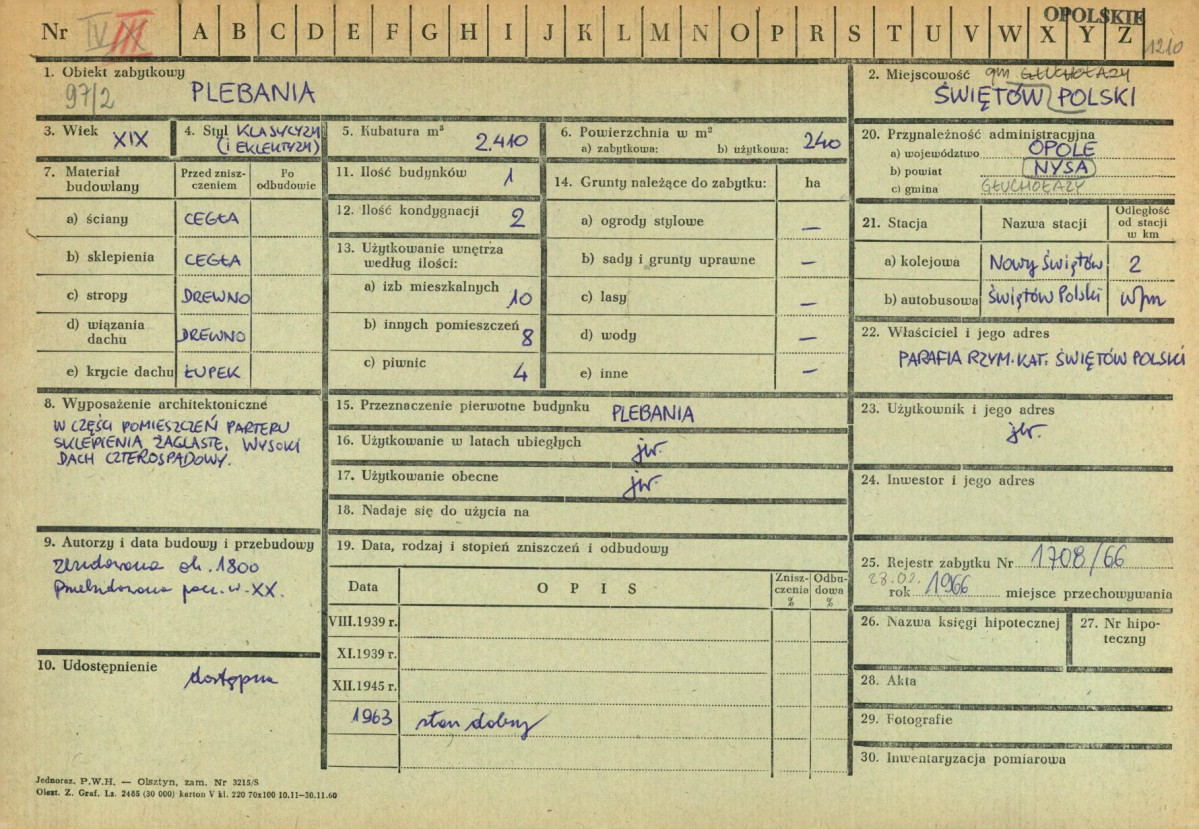 Nr IV III A B C D E F G H I J K L M N O P R S T U V W X Y Z
OPOLSKIE
1210
1. Obiekt zabytkowy
97/2 PLEBANIA
2. Miejscowość gm GŁUCHOŁAZY
ŚWIĘTÓW POLSKI
3. Wiek XIX
4. Styl KLASYCYZM
(i EKLEKTYZM)
5. Kubatura m³
2.410
6. Powierzchnia w m²
a) zabytkowa: b) użytkowa: 240
7. Materiał budowlany
Przed zniszczeniem
Po odbudowie
a) ściany CEGŁA
b) sklepienia CEGŁA
c) stropy DREWNO
d) wiązania dachu DREWNO
e) krycie dachu ŁUPEK
8. Wyposażenie architektoniczne
W CZĘŚCI POMIESZCZEŃ PARTERU
SKLEPIENIA ŻAGLASTE, WYSOKI
DACH CZTEROSPADOWY.
9. Autorzy i data budowy i przebudowy
zbudowana ok. 1800
Przebudowana pocz. w. XX.
10. Udostępnienie
dostępna
11. Ilość budynków 1
12. Ilość kondygnacji 2
13. Użytkowanie wnętrza
według ilości:
a) izb mieszkalnych 10
b) innych pomieszczeń 8
c) piwnic 4
14. Grunty należące do zabytku: ha
a) ogrody stylowe —
b) sady i grunty uprawne —
c) lasy —
d) wody —
e) inne —
15. Przeznaczenie pierwotne budynku PLEBANIA
16. Użytkowanie w latach ubiegłych jw.
17. Użytkowanie obecne jw.
18. Nadaje się do użycia na
19. Data, rodzaj i stopień zniszczeń i odbudowy
Data OPIS Zniszczenia % Odbudowa %
VIII.1939 r.
XI.1939 r.
XII.1945 r.
1963 stan dobry
20. Przynależność administracyjna
a) województwo OPOLE
b) powiat NYSA
c) gmina GŁUCHOŁAZY
21. Stacja Nazwa stacji Odległość od stacji w km
a) kolejowa Nowy Świętów 2
b) autobusowa Świętów Polski w/m
22. Właściciel i jego adres
PARAFIA RZYM.KAT. ŚWIĘTÓW POLSKI
23. Użytkownik i jego adres
jw.
24. Inwestor i jego adres
25. Rejestr zabytku Nr 1708/66
28.02. rok 1966 miejsce przechowywania
26. Nazwa księgi hipotecznej
27. Nr hipoteczny
28. Akta
29. Fotografie
30. Inwentaryzacja pomiarowa
Jednoraz. P.W.H. — Olsztyn, zam. Nr 3215/S
Olszt. Z. Graf. Lz. 2485 (30 000) karton V kl. 220 70x100 10.11—30.11.60